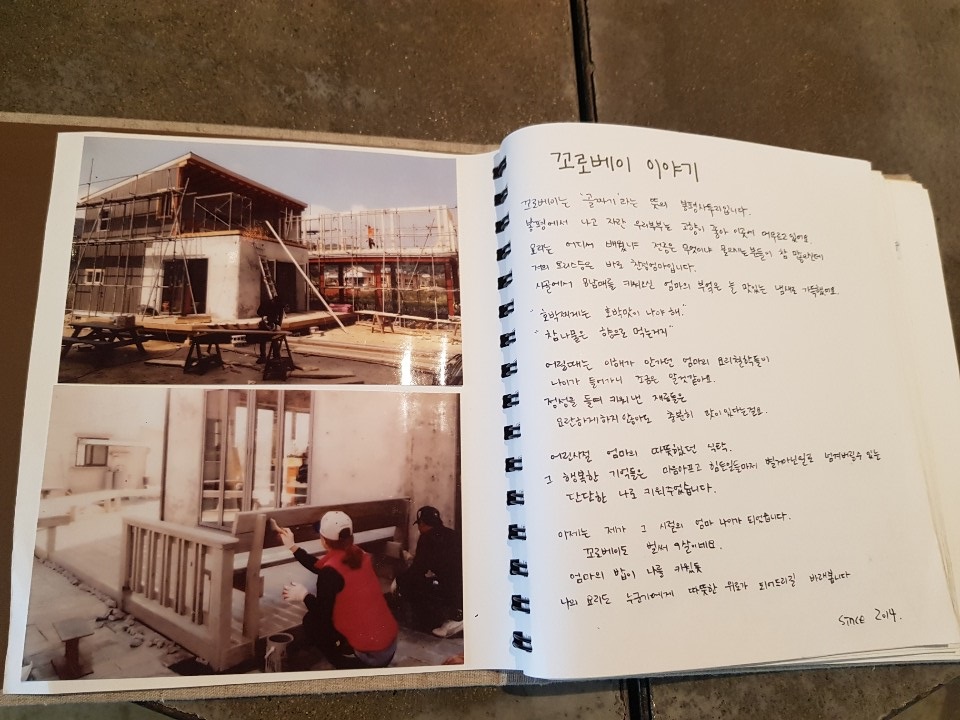 꼬로베이 이야기
꼬로베이는 '골짜기'라는 뜻의 봉평사투리입니다.
봉평에서 나고 자란 우리부부는 고향이 좋아 이곳에 머무르고 있어요
요리는 어디서 배웠냐 전공은 무엇이냐 물으시는분들이 참 많으신데
저의 요리스승은 바로 친정엄마입니다.
시골에서 8남매를 키워오신 엄마의 부엌은 늘 맛있는 냄새로 가득했어요.
"호박찌개는 호박맛이 나야 해."
"참나물은 향으로 먹는거지"
어릴때는 이해가 안가던 엄마의 요리철학들이
나이가 들어가니 조금은 알것같아요.
정성을 들여 키워낸 재료들은
요란하게하지 않아도 충분히 맛이있다는걸요.
어린시절 엄마의 따뜻했던 식탁.
그 행복한 기억들은 마음아프고 힘든일들마저 별거아닌일로 넘겨버릴수 있는
단단한 나로 키워주었습니다.
이제는 제가 그 시절의 엄마 나이가 되었습니다.
꼬로베이도 벌써 9살이네요.
엄마의 밥이 나를 키웠듯
나의 요리도 누군가에게 따뜻한 위로가 되어드리길 바래봅니다
SINCE 2014.